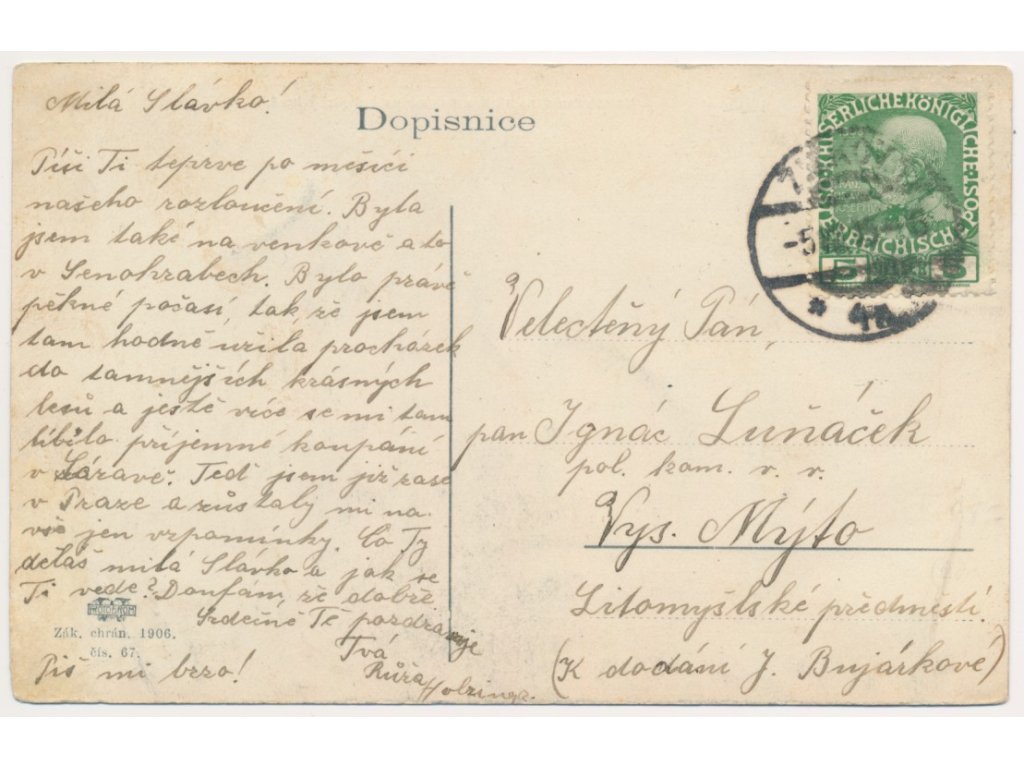 Milá Slávko!
Dopisnice
Píši Ti teprve po měsíci
našeho rozloučení. Byla
jsem také na venkově a to
v Senohrabech. Bylo právě
pěkné počasí, tak že jsem
tam hodně užila procházek
do tamnějších krásných
lesů a ještě více se mi tam
líbilo příjemné koupání
v Sázavě. Teď jsem již zase
v Praze a zůstaly mi na
vše jen vzpomínky. Co Ty
děláš milá Slávko a jak se
Ti vede? Doufám, že dobře.
Srdečně Tě pozdravuje
Tvá
Růža
Piš mi brzo!
Zák. chrán. 1906.
čís. 67.
KAISERLICHE KÖNIGLICHE POST
ÖSTERREICHISCHE
5 5
-5
* 4a
Velectěný Pán,
pan Ignác Luňáček
pol. kom. v. v.
Vys. Mýto
Litomyšlské předměstí.
(K dodání J. Bujárkové)